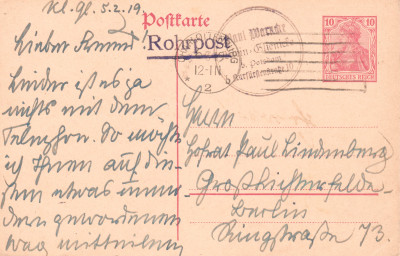 Kl. Gl. 5.2.19.
Postkarte
Rohrpost
12-1N
10
10
DEUTSCHES REICH
Lieber Freund,
Leider ist es ja
nichts mit dem
Telephon. So möchte
ich Ihnen auf die-
sem etwas
dem gewordenen
Weg mitteilen
Herrn
Hofrat Paul Lindenberg
Großlichterfelde-
Berlin
Ringstraße 73.